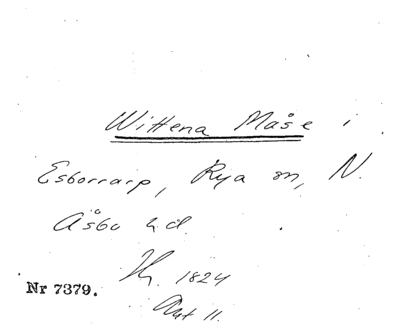 Wittena Måse i
Esborrarp, Rya sn, N.
Åsbo hd.
1824
Nr 7379.
11.